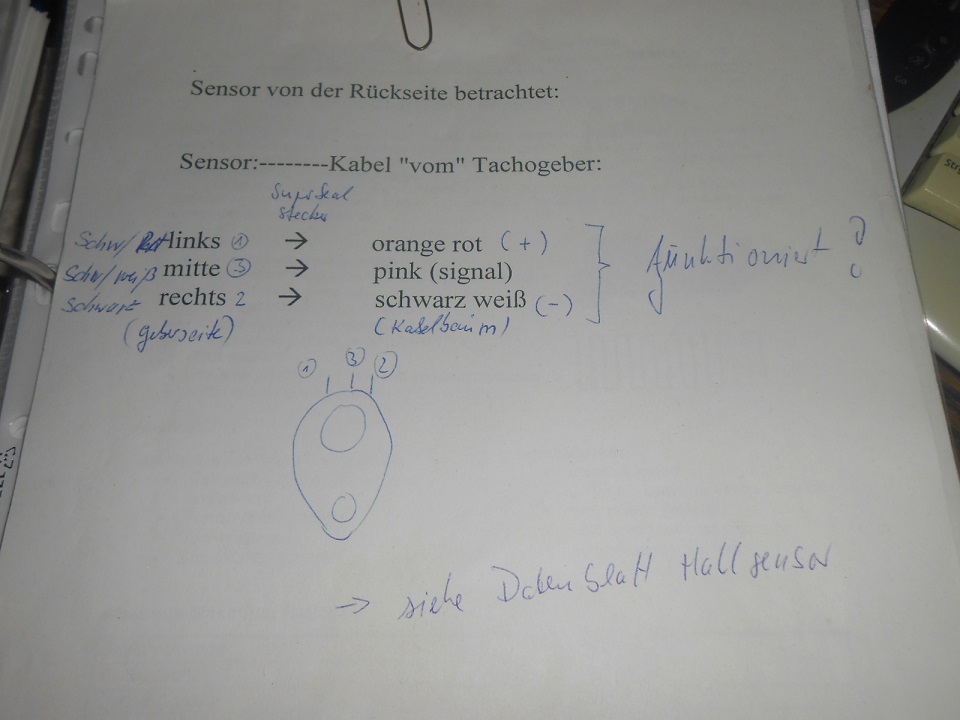 Sensor von der Rückseite betrachtet:
Sensor:--------Kabel "vom" Tachogeber:
SuperSeal
Stecker
Schw/Rot links ① → orange rot (+)
Schw/weiß mitte ③ → pink (signal)
Schwarz rechts 2 → schwarz weiß (-)
(geberseite) (Kabelbaum)
funktioniert
① ③ ②
→ siehe Datenblatt Hallsensor